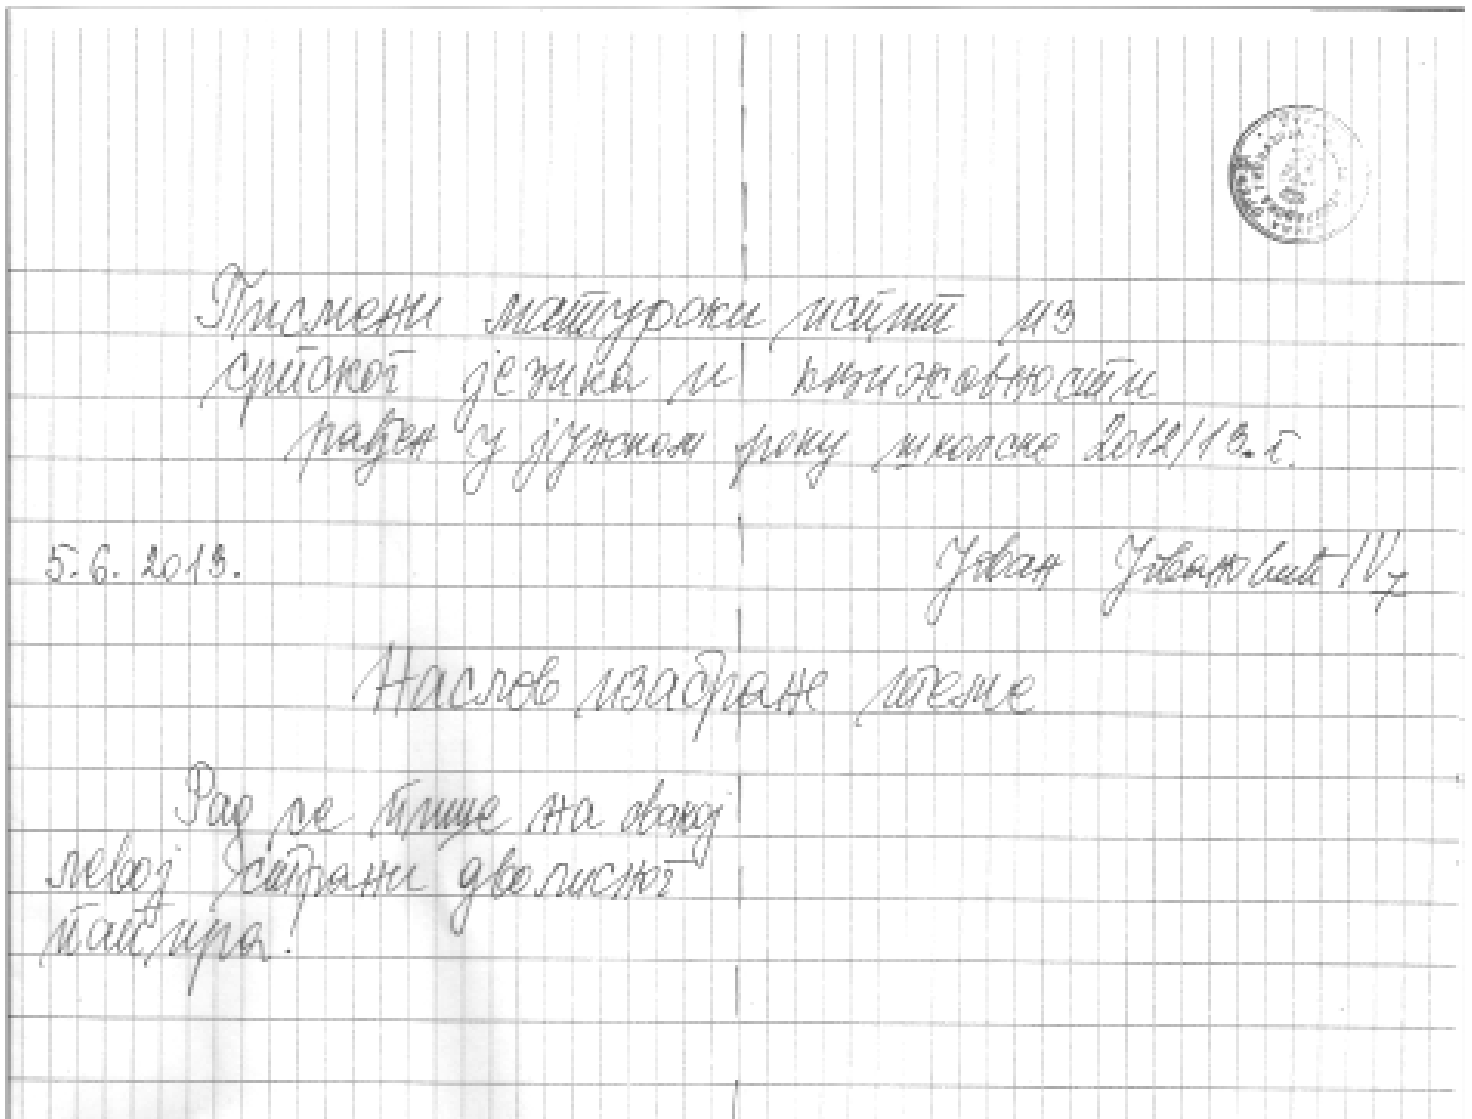 Писмени матурски испит из
српског језика и књижевности
рађен у јунском року школске 2012/13. г.
5.6.2013.
Јован Јовановић IV7
Наслов изабране теме
Рад се пише на овакој
левој страни дволисног
папира!